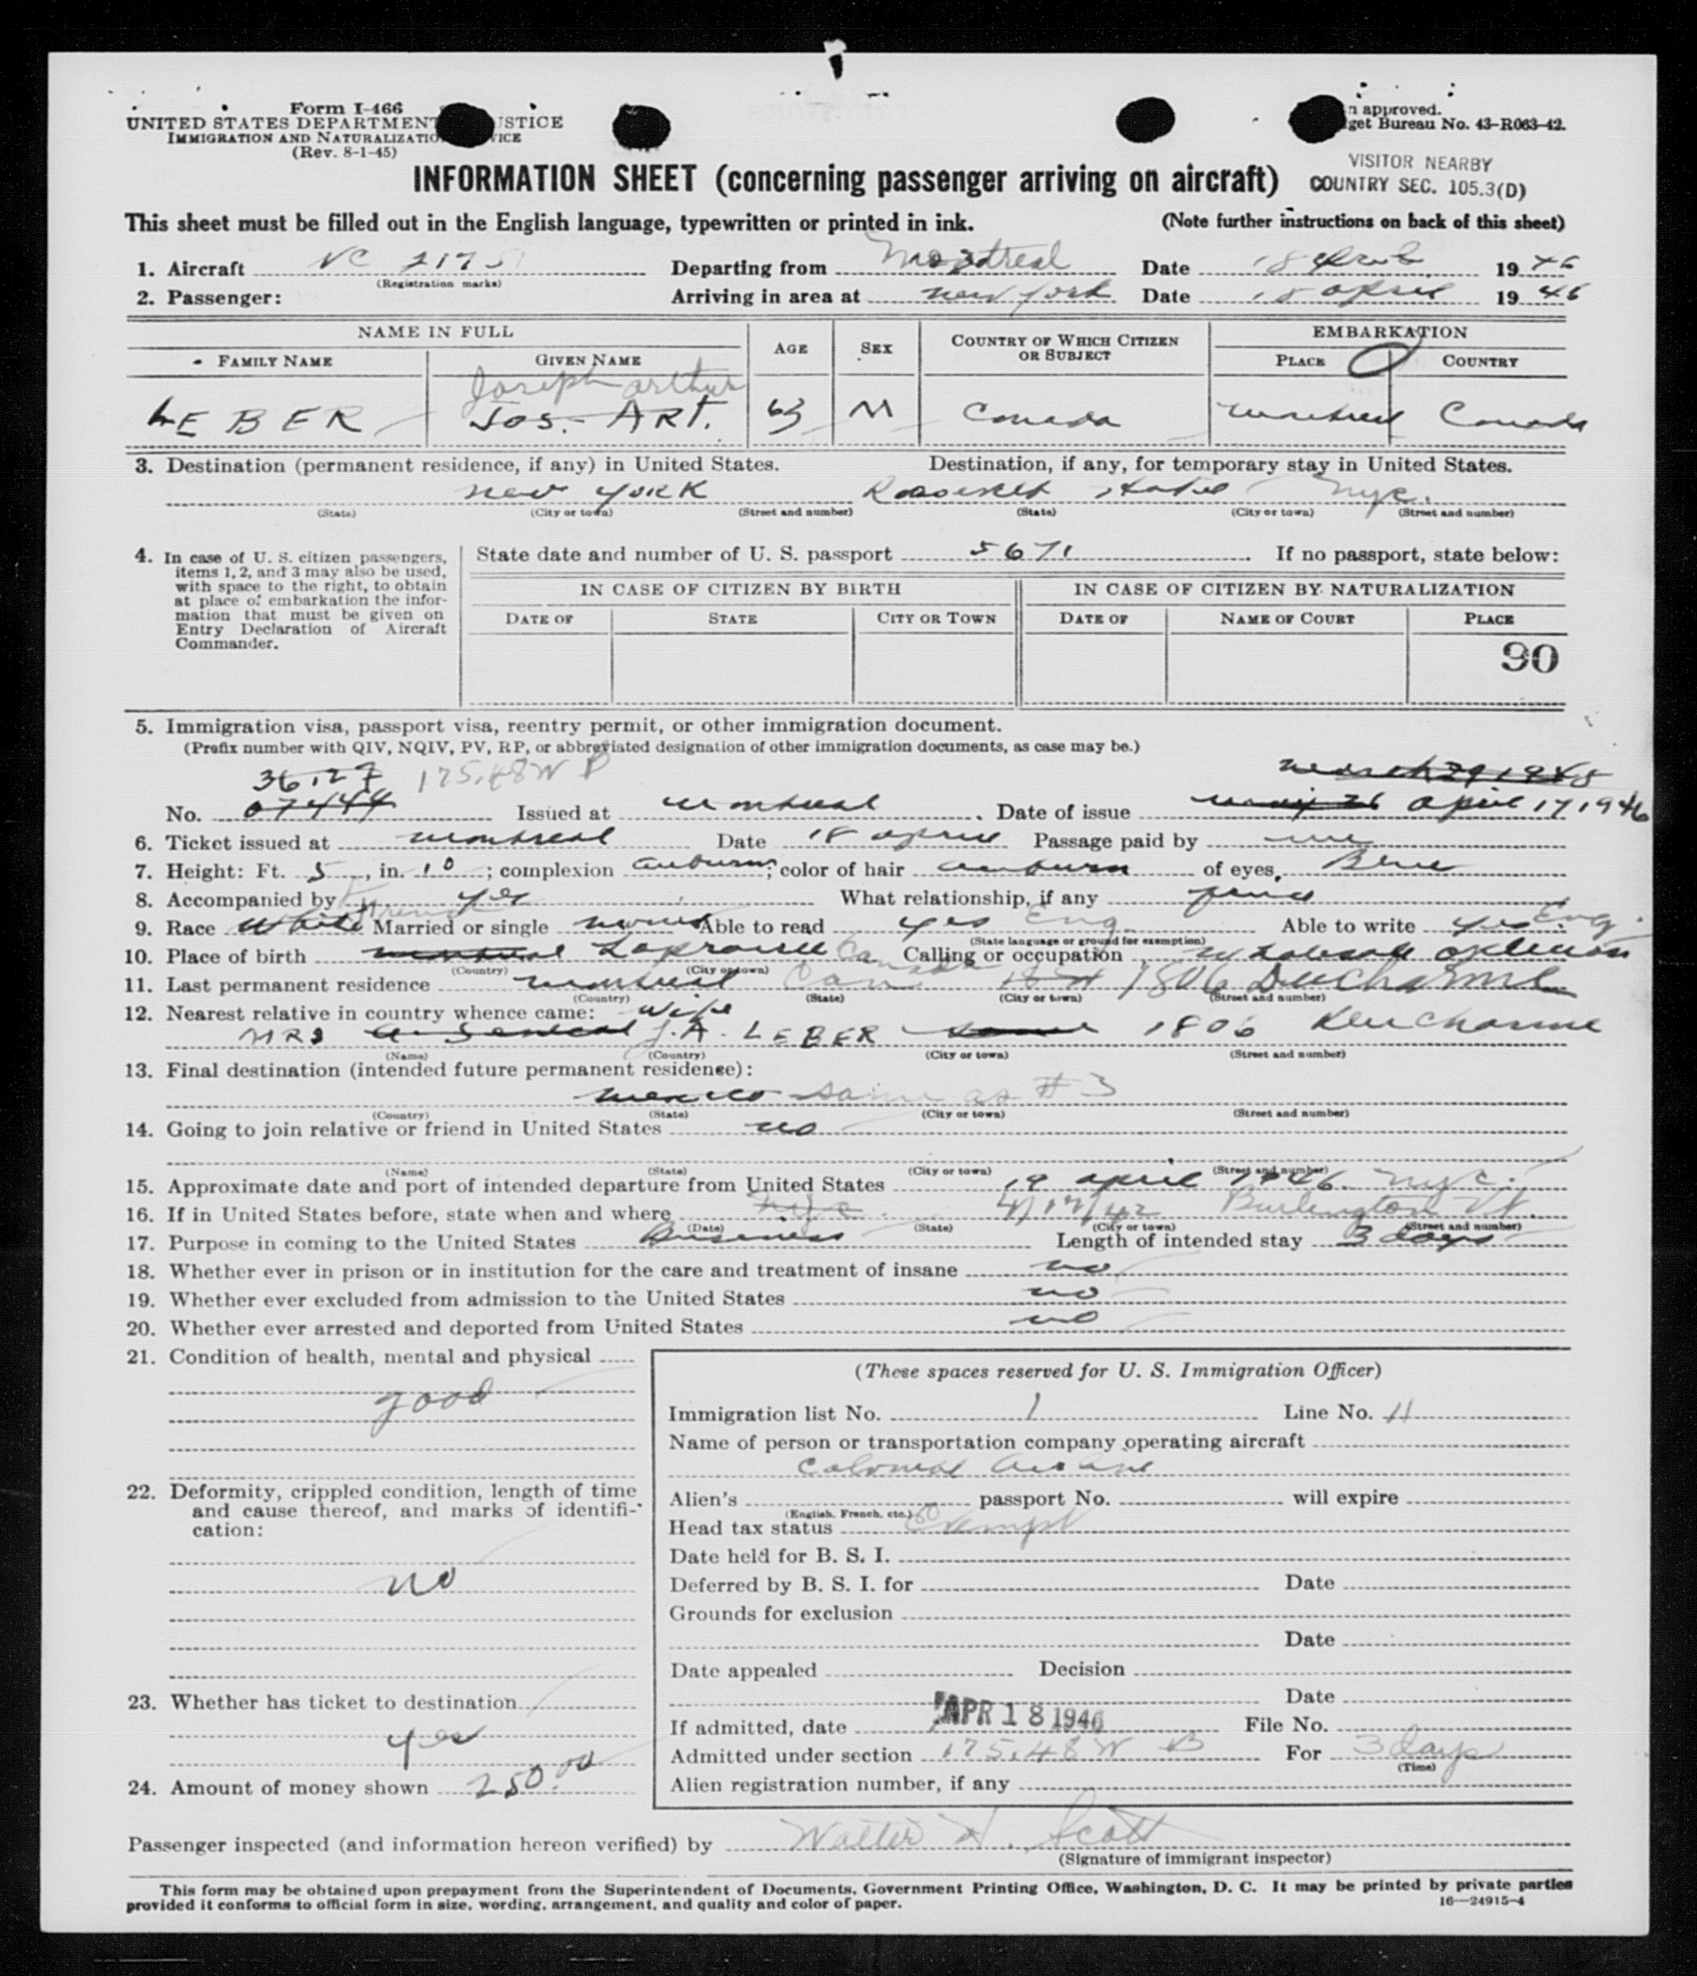 Form I-466
UNITED STATES DEPARTMENT STICE
IMMIGRATION AND NATURALIZATIO VICE
(Rev. 8-1-45)
n approved.
get Bureau No. 43-R063-42.
VISITOR NEARBY
COUNTRY SEC. 105.3(D)
INFORMATION SHEET (concerning passenger arriving on aircraft)
This sheet must be filled out in the English language, typewritten or printed in ink. (Note further instructions on back of this sheet)
1. Aircraft NC 2175 Departing from Montreal Date 18 April 1946
(Registration marks)
2. Passenger: Arriving in area at New York Date 18 April 1946
NAME IN FULL AGE SEX COUNTRY OF WHICH CITIZEN OR SUBJECT EMBARKATION
FAMILY NAME GIVEN NAME PLACE COUNTRY
Joseph Arthur
LEBER JOS. ART. 63 M Canada Montreal Canada
3. Destination (permanent residence, if any) in United States. Destination, if any, for temporary stay in United States.
New York Roosevelt Hotel NYC.
(State) (City or town) (Street and number) (State) (City or town) (Street and number)
4. In case of U. S. citizen passengers, items 1, 2, and 3 may also be used, with space to the right, to obtain at place of embarkation the information that must be given on Entry Declaration of Aircraft Commander.
State date and number of U. S. passport 5671 If no passport, state below:
IN CASE OF CITIZEN BY BIRTH IN CASE OF CITIZEN BY NATURALIZATION
DATE OF STATE CITY OR TOWN DATE OF NAME OF COURT PLACE
90
5. Immigration visa, passport visa, reentry permit, or other immigration document.
(Prefix number with QIV, NQIV, PV, RP, or abbreviated designation of other immigration documents, as case may be.)
36127 175.48W B March 29 1945
No. 07444 Issued at Montreal Date of issue May 26 April 17 1946
6. Ticket issued at Montreal Date 18 April Passage paid by me
7. Height: Ft. 5, in. 10; complexion auburn; color of hair auburn of eyes, Blue
8. Accompanied by yes What relationship, if any
French
9. Race White Married or single Able to read yes Eng Able to write yes Eng.
(State language or ground for exemption)
10. Place of birth Montreal Laprairie Canada Calling or occupation
(Country) (City or town)
11. Last permanent residence Montreal Can 1806 Ducharme
(Country) (State) (City or town) (Street and number)
12. Nearest relative in country whence came: Wife
MRS J. A. LEBER same 1806 Ducharme
(Name) (Country) (City or town) (Street and number)
13. Final destination (intended future permanent residence):
Mexico same as #3
(Country) (State) (City or town) (Street and number)
14. Going to join relative or friend in United States no
(Name) (State) (City or town) (Street and number)
15. Approximate date and port of intended departure from United States 19 April 1946 NYC.
16. If in United States before, state when and where NYC. 4/17/42 Burlington Vt.
(Date) (State) (City or town) (Street and number)
17. Purpose in coming to the United States Business Length of intended stay 3 days
18. Whether ever in prison or in institution for the care and treatment of insane no
19. Whether ever excluded from admission to the United States no
20. Whether ever arrested and deported from United States no
21. Condition of health, mental and physical
good
22. Deformity, crippled condition, length of time and cause thereof, and marks of identification:
no
23. Whether has ticket to destination
yes
24. Amount of money shown 250.00
(These spaces reserved for U. S. Immigration Officer)
Immigration list No. 1 Line No. 11
Name of person or transportation company operating aircraft
Colonial Airline
Alien's passport No. will expire
(English, French, etc.)
Head tax status Exempt
Date held for B. S. I.
Deferred by B. S. I. for Date
Grounds for exclusion
Date
Date appealed Decision
Date
If admitted, date APR 18 1946 File No.
Admitted under section 175.48W B For 3 days
(Time)
Alien registration number, if any
Passenger inspected (and information hereon verified) by Walter Scott
(Signature of immigrant inspector)
This form may be obtained upon prepayment from the Superintendent of Documents, Government Printing Office, Washington, D. C. It may be printed by private parties
provided it conforms to official form in size, wording, arrangement, and quality and color of paper.
16—24915-4